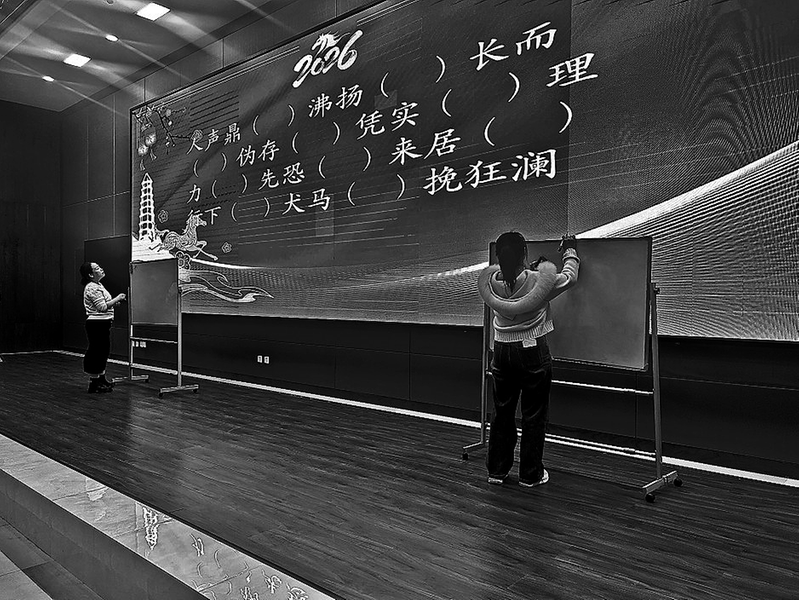 2026
人声鼎（ ）沸扬（ ）长而
（ ）伪存（ ）凭实（ ）理
力（ ）先恐（ ）来居（ ）
行下（ ）犬马（ ）挽狂澜